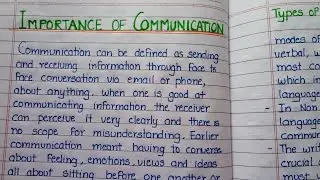 IMPORTANCE OF COMMUNICATION
Communication can be defined as sending
and receiving information through face to
face conversation via email or phone,
about anything. when one is good at
communicating information the receiver
can perceive it very clearly and there is
no scope for misunderstanding. Earlier
communication meant having to converse
about feeling, emotions, views and ideas
all about sitting before one another or
Types of
modes of
verbal, w
most co
which in
language
- In Non
language
Commun
- The writ
crucial a
must